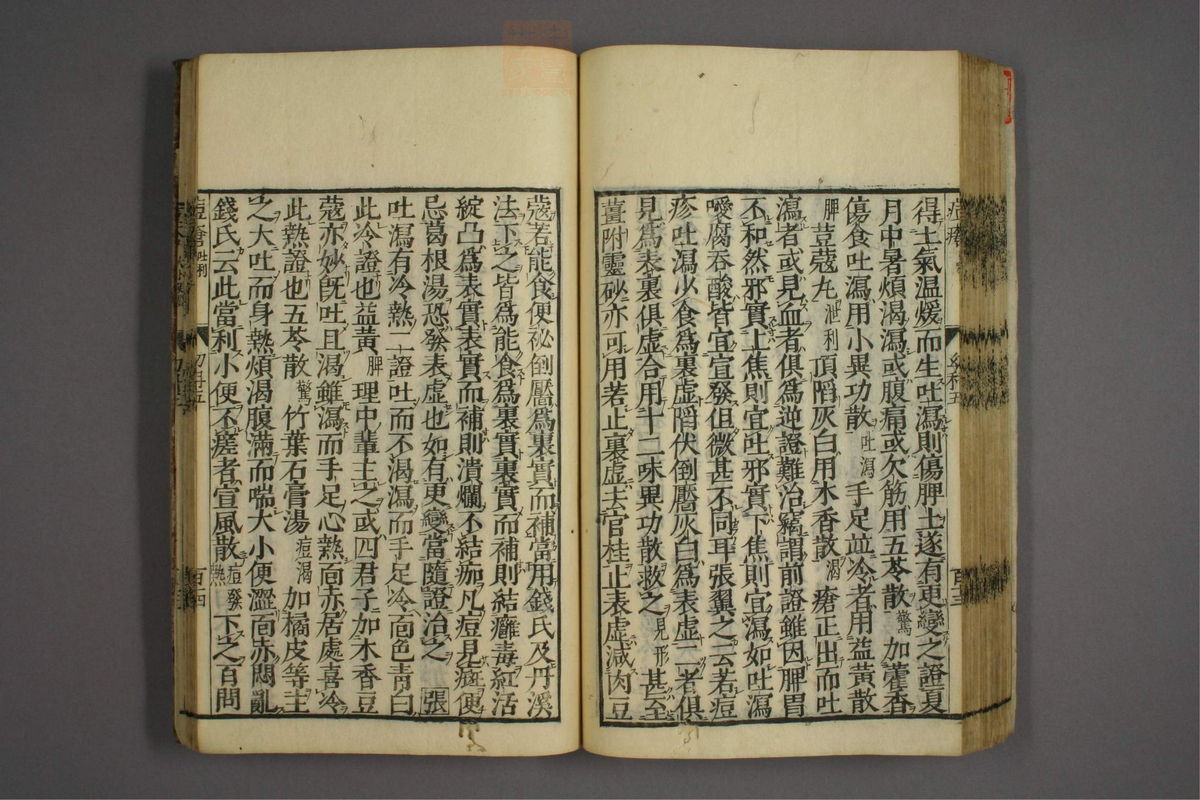 得土氣温煖而生吐瀉則傷脾土遂有更變之證夏
月中暑煩渴瀉或腹痛或欠筋用五苓散驚加藿香
傷食吐瀉用小異功散吐瀉手足並冷者用益黃散
脾荳蔻丸泄利頂䧟灰白用木香散渴瘡正出而吐
瀉者或見血者俱爲逆證難治竊謂前證雖因脾胃
不和然邪實上焦則宜吐邪實下焦則宜瀉如吐瀉
噯腐吞酸皆宜宣發但微甚不同耳張翼之云若痘
疹吐瀉少食爲裏虛䧟伏倒靨灰白爲表虛二者俱
見爲表裏俱虛合用十二味異功散救之見形甚至
薑附靈砂亦可用若止裏虛去官桂止表虛減肉豆
蔻若能食便祕倒靨爲裏實而補當用錢氏及丹溪
法下之皆爲能食爲裏實裏實而補則結癰毒紅活
綻凸爲表實表實而補則潰爛不結痂凡痘見斑便
忌葛根湯恐發表虛也如有更變當隨證治之張
吐瀉有冷熱二證吐而不渴瀉而手足冷面色青白
此冷證也益黃脾理中輩主之或四君子加木香豆
蔻亦妙旣吐且渴雖瀉而手足心熱面赤居處喜冷
此熱證也五苓散驚竹葉石膏湯痘渴加橘皮等主
之大吐而身熱煩渴腹滿而喘大小便澀面赤悶亂
錢氏云此當利小便不瘥者宣風散痘發熱下之百問
痘瘡吐利
幼科五
百十四